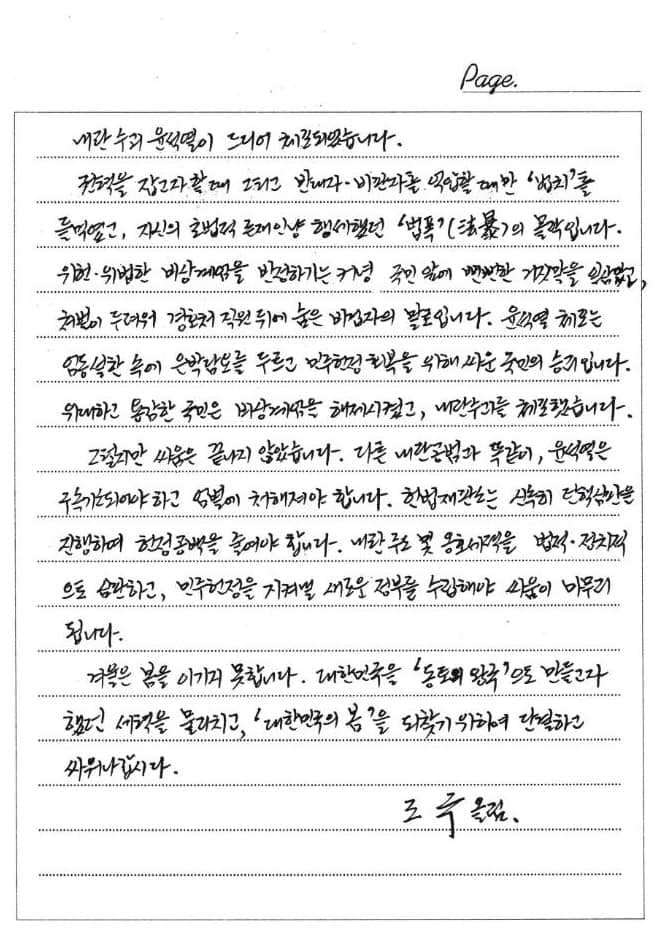 Page.
내란 수괴 윤석열이 드디어 체포되었습니다.
권력을 잡고자 할 때 그리고 반대자·비판자를 억압할 때만 '법치'를
들먹였고, 자신의 초법적 존재인양 행세했던 '법폭'(法暴)의 몰락입니다.
위헌·위법한 비상계엄을 반성하기는 커녕 국민 앞에 뻔뻔한 거짓말을 일삼았고,
처벌이 두려워 경호처 직원 뒤에 숨은 비겁자의 말로입니다. 윤석열 체포는
엄동설한 속에 은박담요를 두르고 민주헌정 회복을 위해 싸운 국민의 승리입니다.
위대하고 용감한 국민은 비상계엄을 해제시켰고, 내란수괴를 체포했습니다.
그렇지만 싸움은 끝나지 않았습니다. 다른 내란공범과 똑같이, 윤석열은
구속기소되어야 하고 엄벌에 처해져야 합니다. 헌법재판소는 신속히 탄핵심판을
진행하여 헌정공백을 줄여야 합니다. 내란 주도 및 옹호세력을 법적·정치적
으로 심판하고, 민주헌정을 지켜낼 새로운 정부를 수립해야 싸움이 마무리
됩니다.
겨울은 봄을 이기지 못합니다. 대한민국을 '동토의 왕국'으로 만들고자
했던 세력을 물리치고, '대한민국의 봄'을 되찾기 위하여 단결하고
싸워나갑시다.
조국 올림.